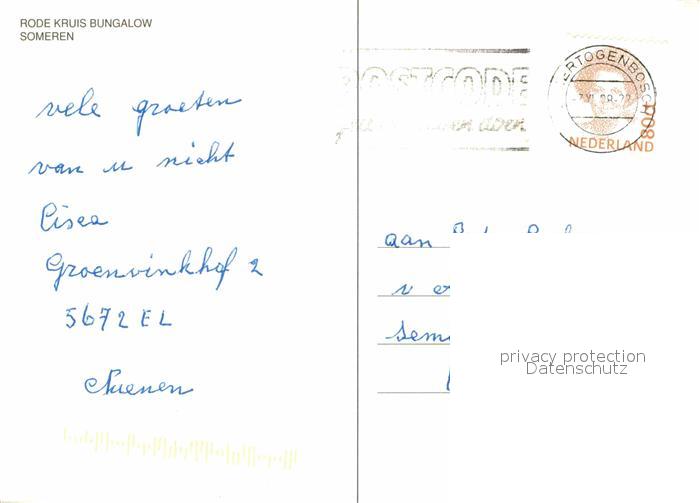 RODE KRUIS BUNGALOW
SOMEREN
vele groeten
van u nicht
Lisea
Groenvinkhof 2
5672 EL
Nuenen
POSTCODE
ERTOGENBOSCH
NEDERLAND
80
aan
v
sem
privacy protection
Datenschutz